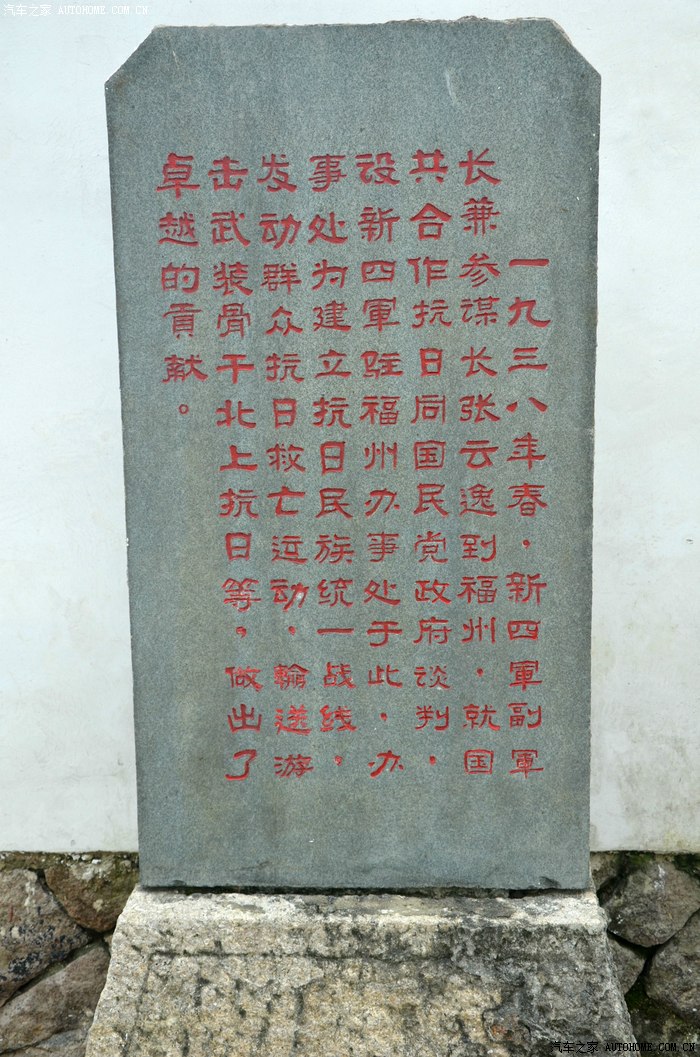 汽车之家 AUTOHOME.COM.CN
一九三八年春，新四軍副軍
长兼参谋长张云逸到福州，就国
共合作抗日同国民党政府谈判，
设新四軍驻福州办事处于此，办
事处为建立抗日民族统一战线，
发动群众抗日救亡运动，输送游
击武装骨干北上抗日等，做出了
卓越的貢献。
汽车之家 AUTOHOME.COM.CN